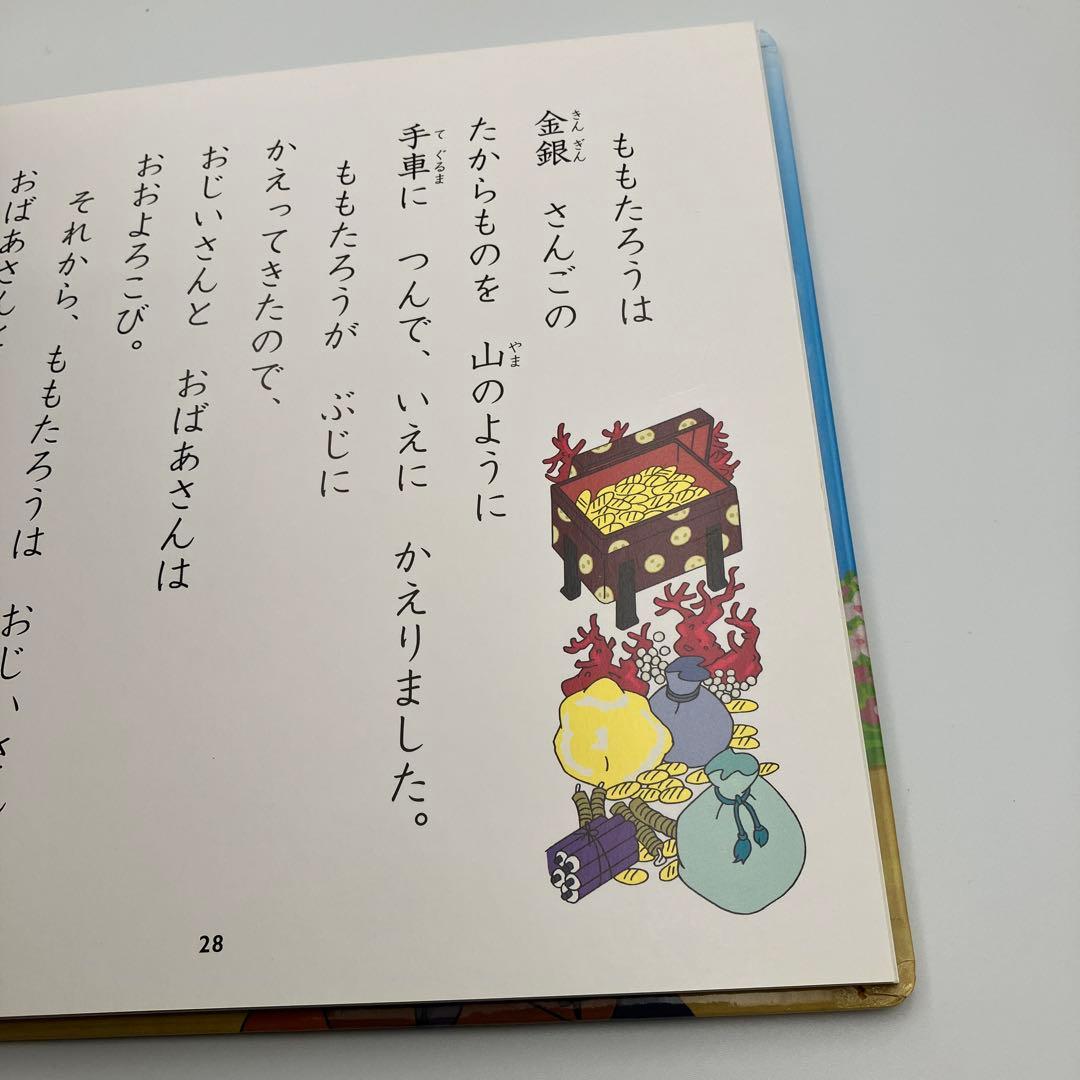 ももたろうは
金銀　さんごの
たからものを　山のように
手車に　つんで、いえに　かえりました。
ももたろうが　ぶじに
かえってきたので、
おじいさんと　おばあさんは
おおよろこび。
それから、ももたろうは　おじいさん
おばあさんと
きん ぎん
やま
て ぐるま
28